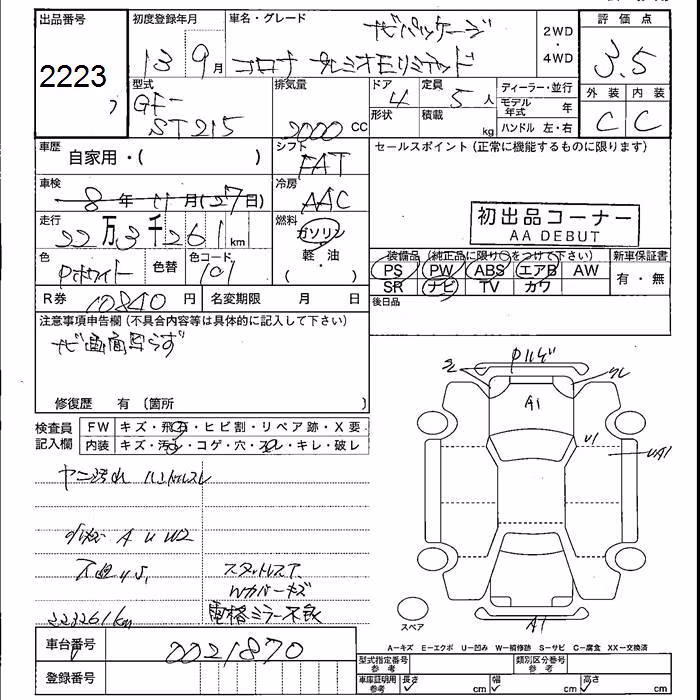 出品番号 2223
初度登録年月 13 9月
車名・グレード ナビパッケージ
コロナ プレミオEリミテッド
2WD・4WD
評価点 3.5
外装 内装
C C
型式 GF-ST215
排気量 2000 CC
ドア 4
形状
定員 5人
積載 kg
ディーラー・並行
モデル年式 年
ハンドル 左・右
車歴 自家用・( )
シフト FAT
セールスポイント(正常に機能するものに限ります)
車検 8年 11月(27日)
冷房 AAC
走行 22万3千261km
燃料 ガソリン
軽・油
( )
初出品コーナー
AA DEBUT
色 Pホワイト
色替
色コード 101
装備品 (純正品に限り○をつけて下さい)
PS PW ABS エアB AW
SR ナビ TV カワ
新車保証書
有・無
R券 10840円
名変期限 月 日
後日品
注意事項申告欄(不具合内容等は具体的に記入して下さい)
ナビ画面写らず
修復歴 有(箇所 )
検査員記入欄
FW キズ・飛石・ヒビ割・リペア跡・X要
内装 キズ・汚れ・コゲ・穴・スレ・キレ・破レ
ヤニ汚れ ハンドルスレ
A U W2
スタットレスT
Wカバーキズ
電格ミラー不良
223261km
A1
U1
UA1
A1
スペア
A-キズ E-エクボ U-凹み W-補修跡 S-サビ C-腐食 XX-交換済
車台番号 0021870
登録番号
型式指定番号参考
類別区分番号参考
車庫証明用参考 長さ cm 幅 cm 高さ cm